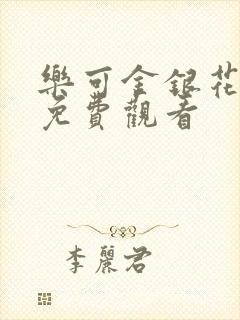 樂可金銀花
免費觀看
李麗君